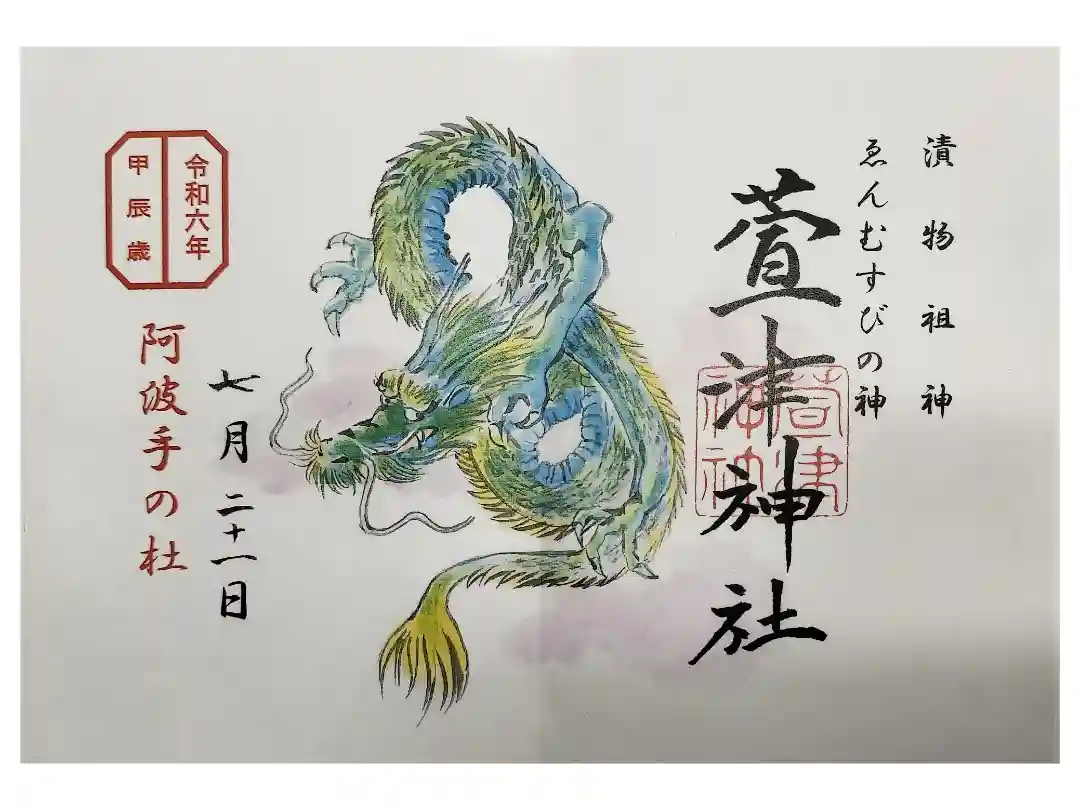 漬物祖神
ゑんむすびの神
萱津神社
萱津
神社
七月二十一日
令和六年
甲辰歳
阿波手の杜